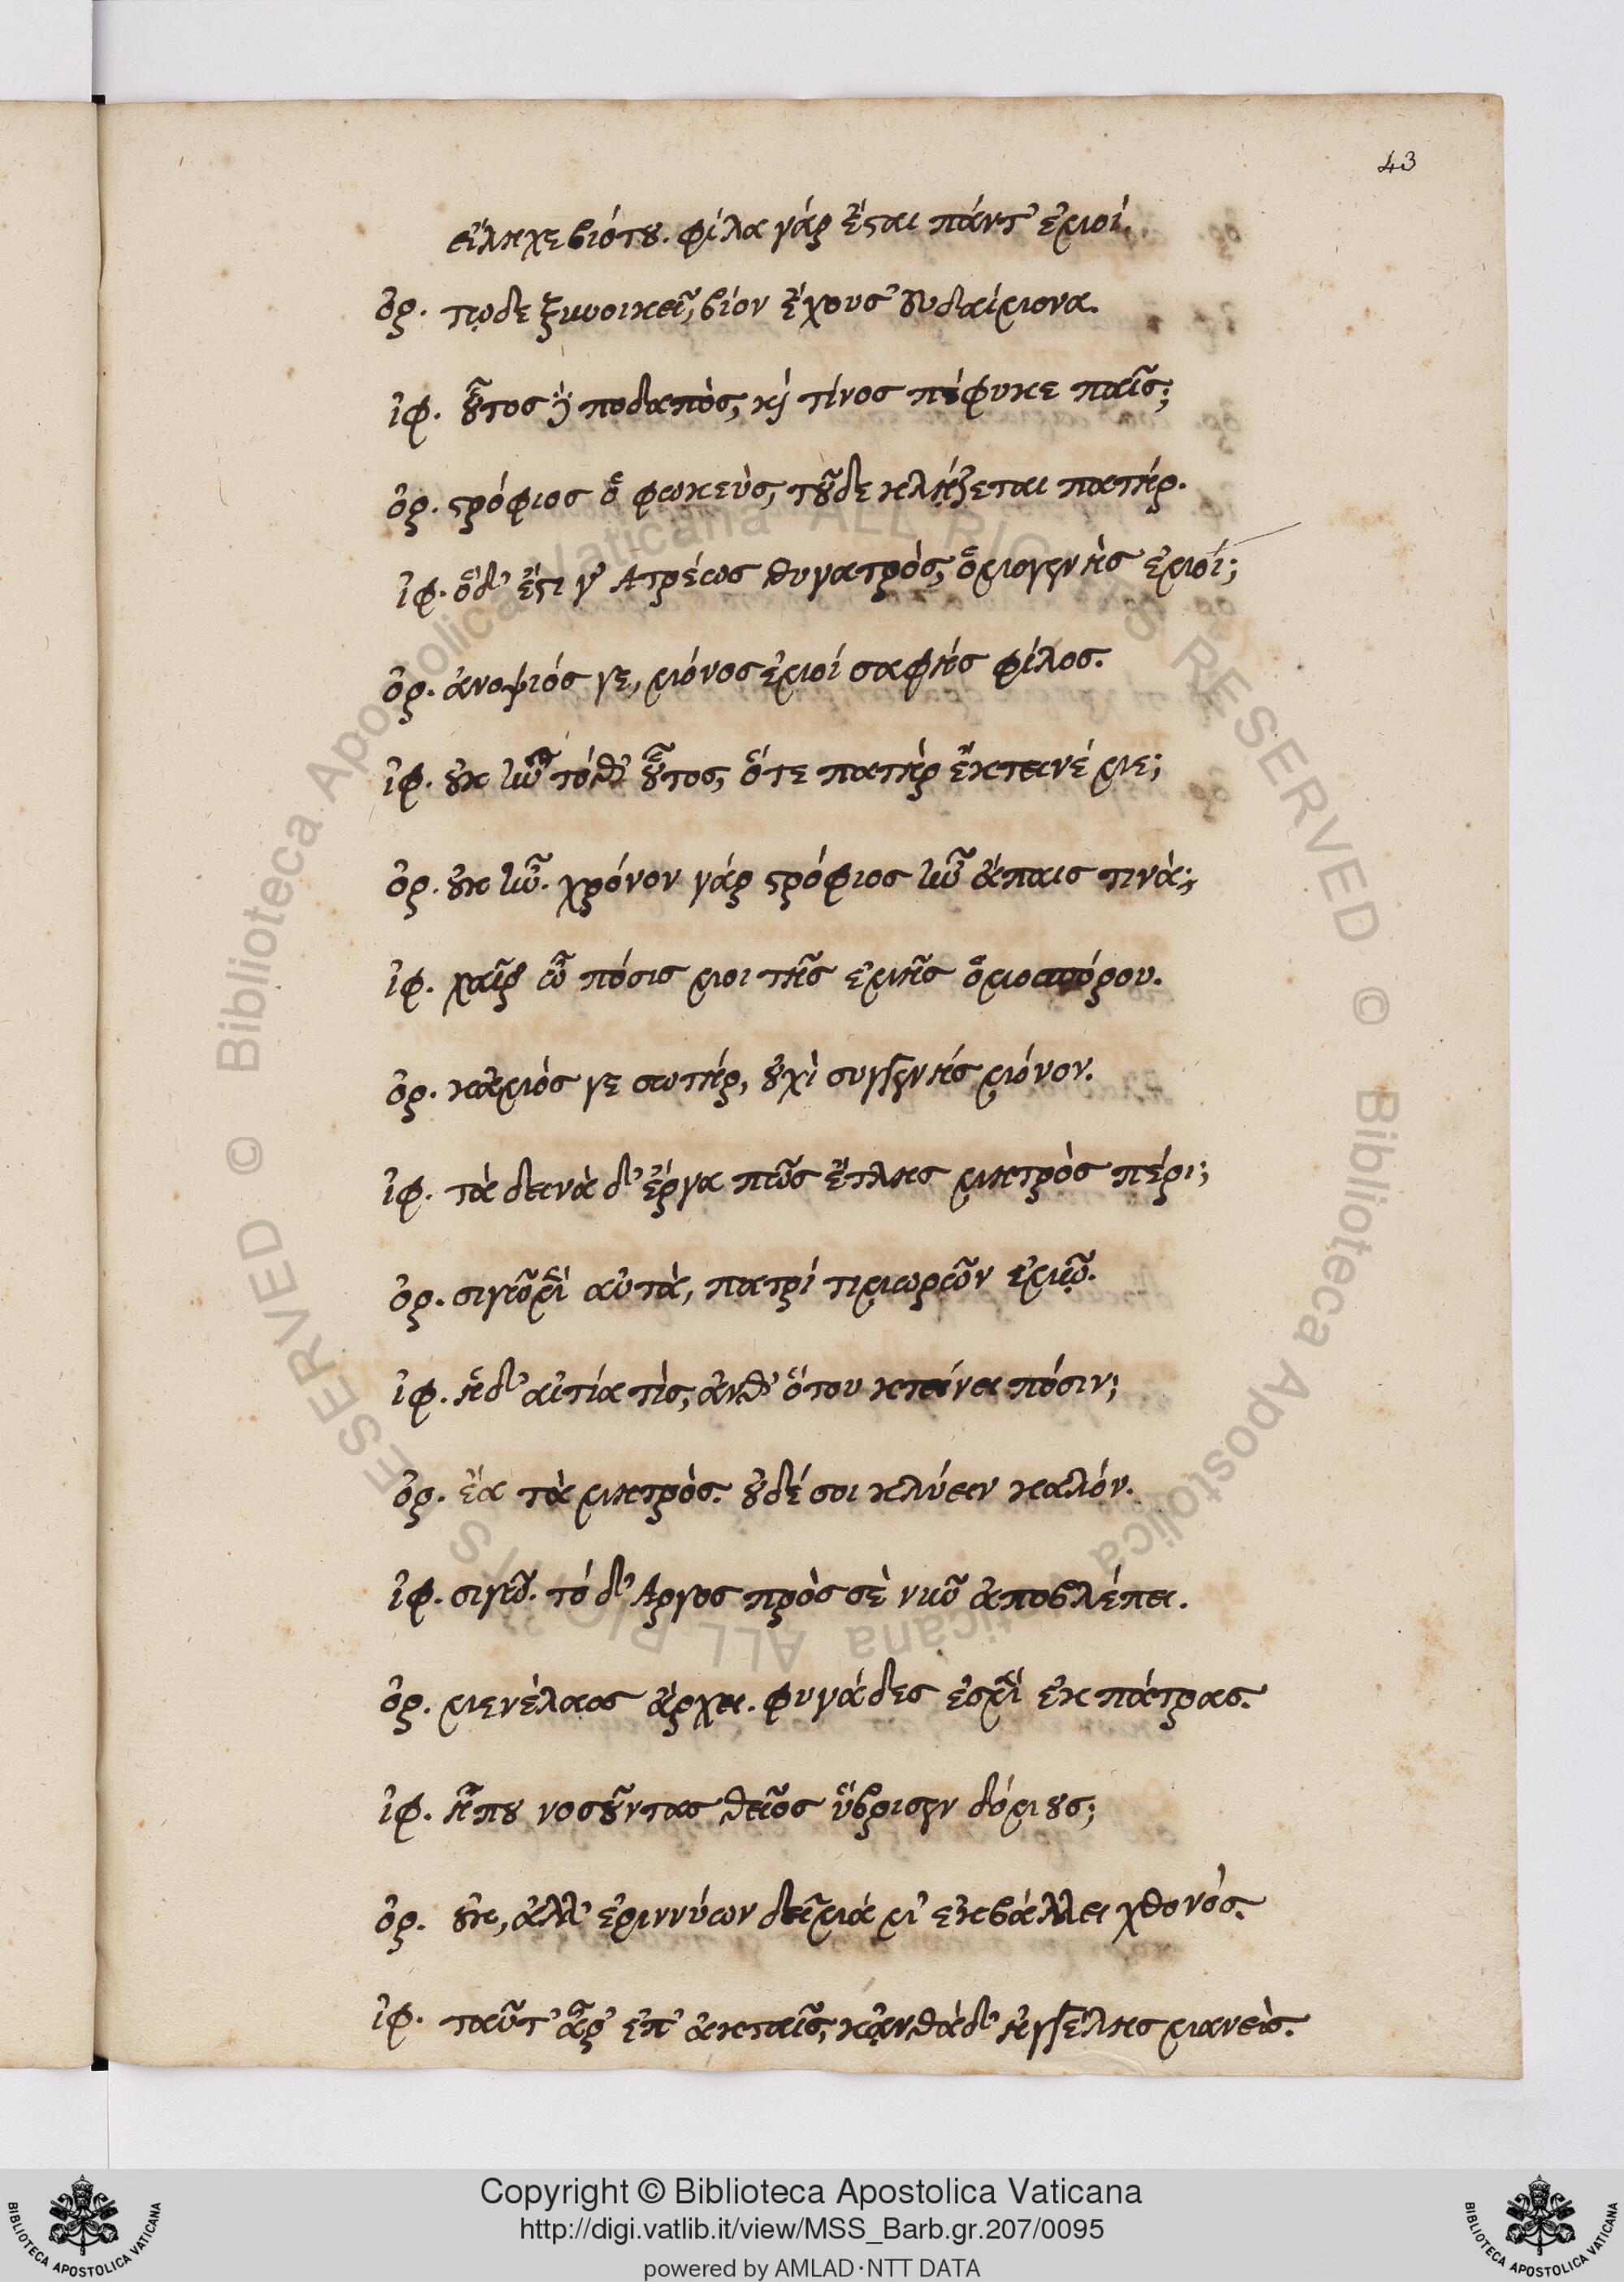 43
εἴληχε βιότου. φίλα γάρ ἔσται πάντ' ἐμοί.
ὀρ. τῷδε ξυνοικεῖ, βίον ἔχουσ' εὐδαίμονα.
ἰφ. οὗτος δὲ ποδαπὸς, καὶ τίνος πέφυκε παῖς;
ὀρ. στρόφιος ὁ φωκεὺς, τοῦδε κλῄζεται πατήρ.
ἰφ. ὅδ' ἔστι γ' Ατρέως θυγατρὸς, ὁμογενὴς ἐμοί;
ὀρ. ἀνεψιός γε, μόνος ἐμοί σαφής φίλος.
ἰφ. οὐκ ἦν τόθ' οὗτος, ὅτε πατὴρ ἔκτεινέ με;
ὀρ. οὐκ ἦν. χρόνον γάρ στρόφιος ἦν ἄπαις τινά;
ἰφ. χαῖρ' ὦ πόσις μοι τῆς ἐμῆς ὁμοσπόρου.
ὀρ. κἀμός γε σωτήρ, οὐχὶ συγγενής μόνον.
ἰφ. τὰ δεινὰ δ' ἔργα πῶς ἔτλης μητρὸς πέρι;
ὀρ. σιγῶμεν αὐτὰ, πατρί τιμωρῶν ἐμῷ.
ἰφ. ἡ δ' αἰτία τὶς, ἀνθ' ὅτου κτείνει πόσιν;
ὀρ. ἔα τὰ μητρὸς. οὐδέ σοι κλύειν καλόν.
ἰφ. σιγῶ. τό δ' Αργος πρὸς σὲ νῦν ἀποβλέπει.
ὀρ. μενέλαος ἄρχει. φυγάδες ἐσμὲν ἐκ πάτρας.
ἰφ. ἦπου νοσοῦντας θεῖος ὕβρισεν δόμους;
ὀρ. οὐκ, ἀλλ' ἐριννύων δεῖμά μ' ἐκβάλλει χθονός.
ἰφ. ταῦτ' ἆρ' ἐπ' ἀκταῖς, κἀνθάδ' ἠγγέλης μανείς.
Copyright © Biblioteca Apostolica Vaticana
http://digi.vatlib.it/view/MSS_Barb.gr.207/0095
powered by AMLAD·NTT DATA
BIBLIOTECA APOSTOLICA VATICANA
BIBLIOTECA APOSTOLICA VATICANA
© Biblioteca Apostolica Vaticana ALL RIGHTS RESERVED
© Biblioteca Apostolica Vaticana ALL RIGHTS RESERVED